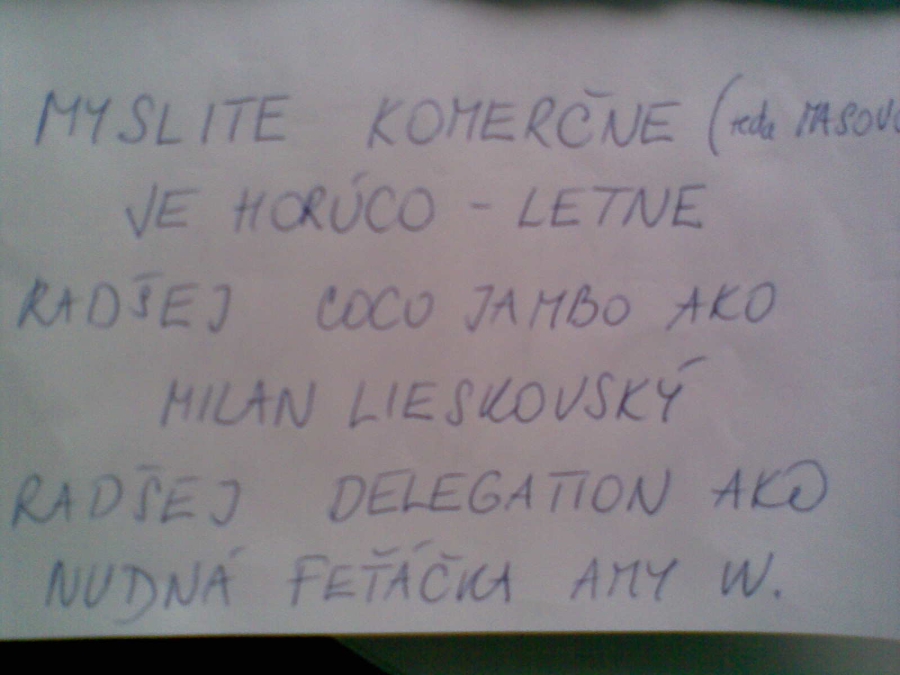 MYSLITE KOMERČNE (teda MASOVO
JE HORÚCO - LETNE
RADŠEJ COCO JAMBO AKO
MILAN LIESKOVSKÝ
RADŠEJ DELEGATION AKO
NUDNÁ FEŤÁČKA AMY W.